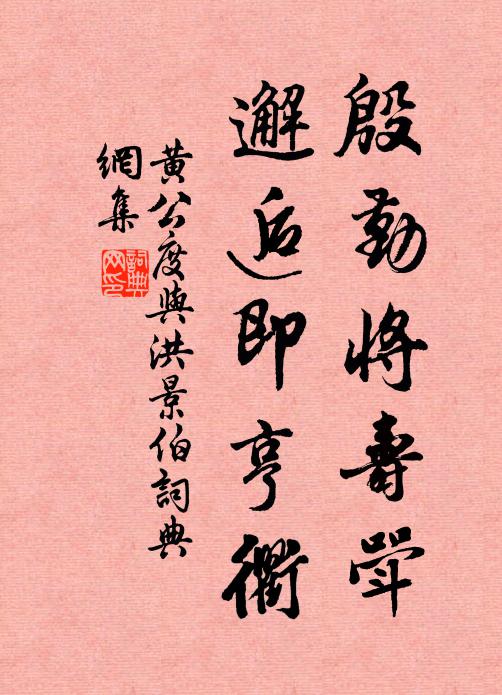 殷勤將壽斝
邂逅即亨衢
黃公度與洪景伯詞典
網集
詞典
网印